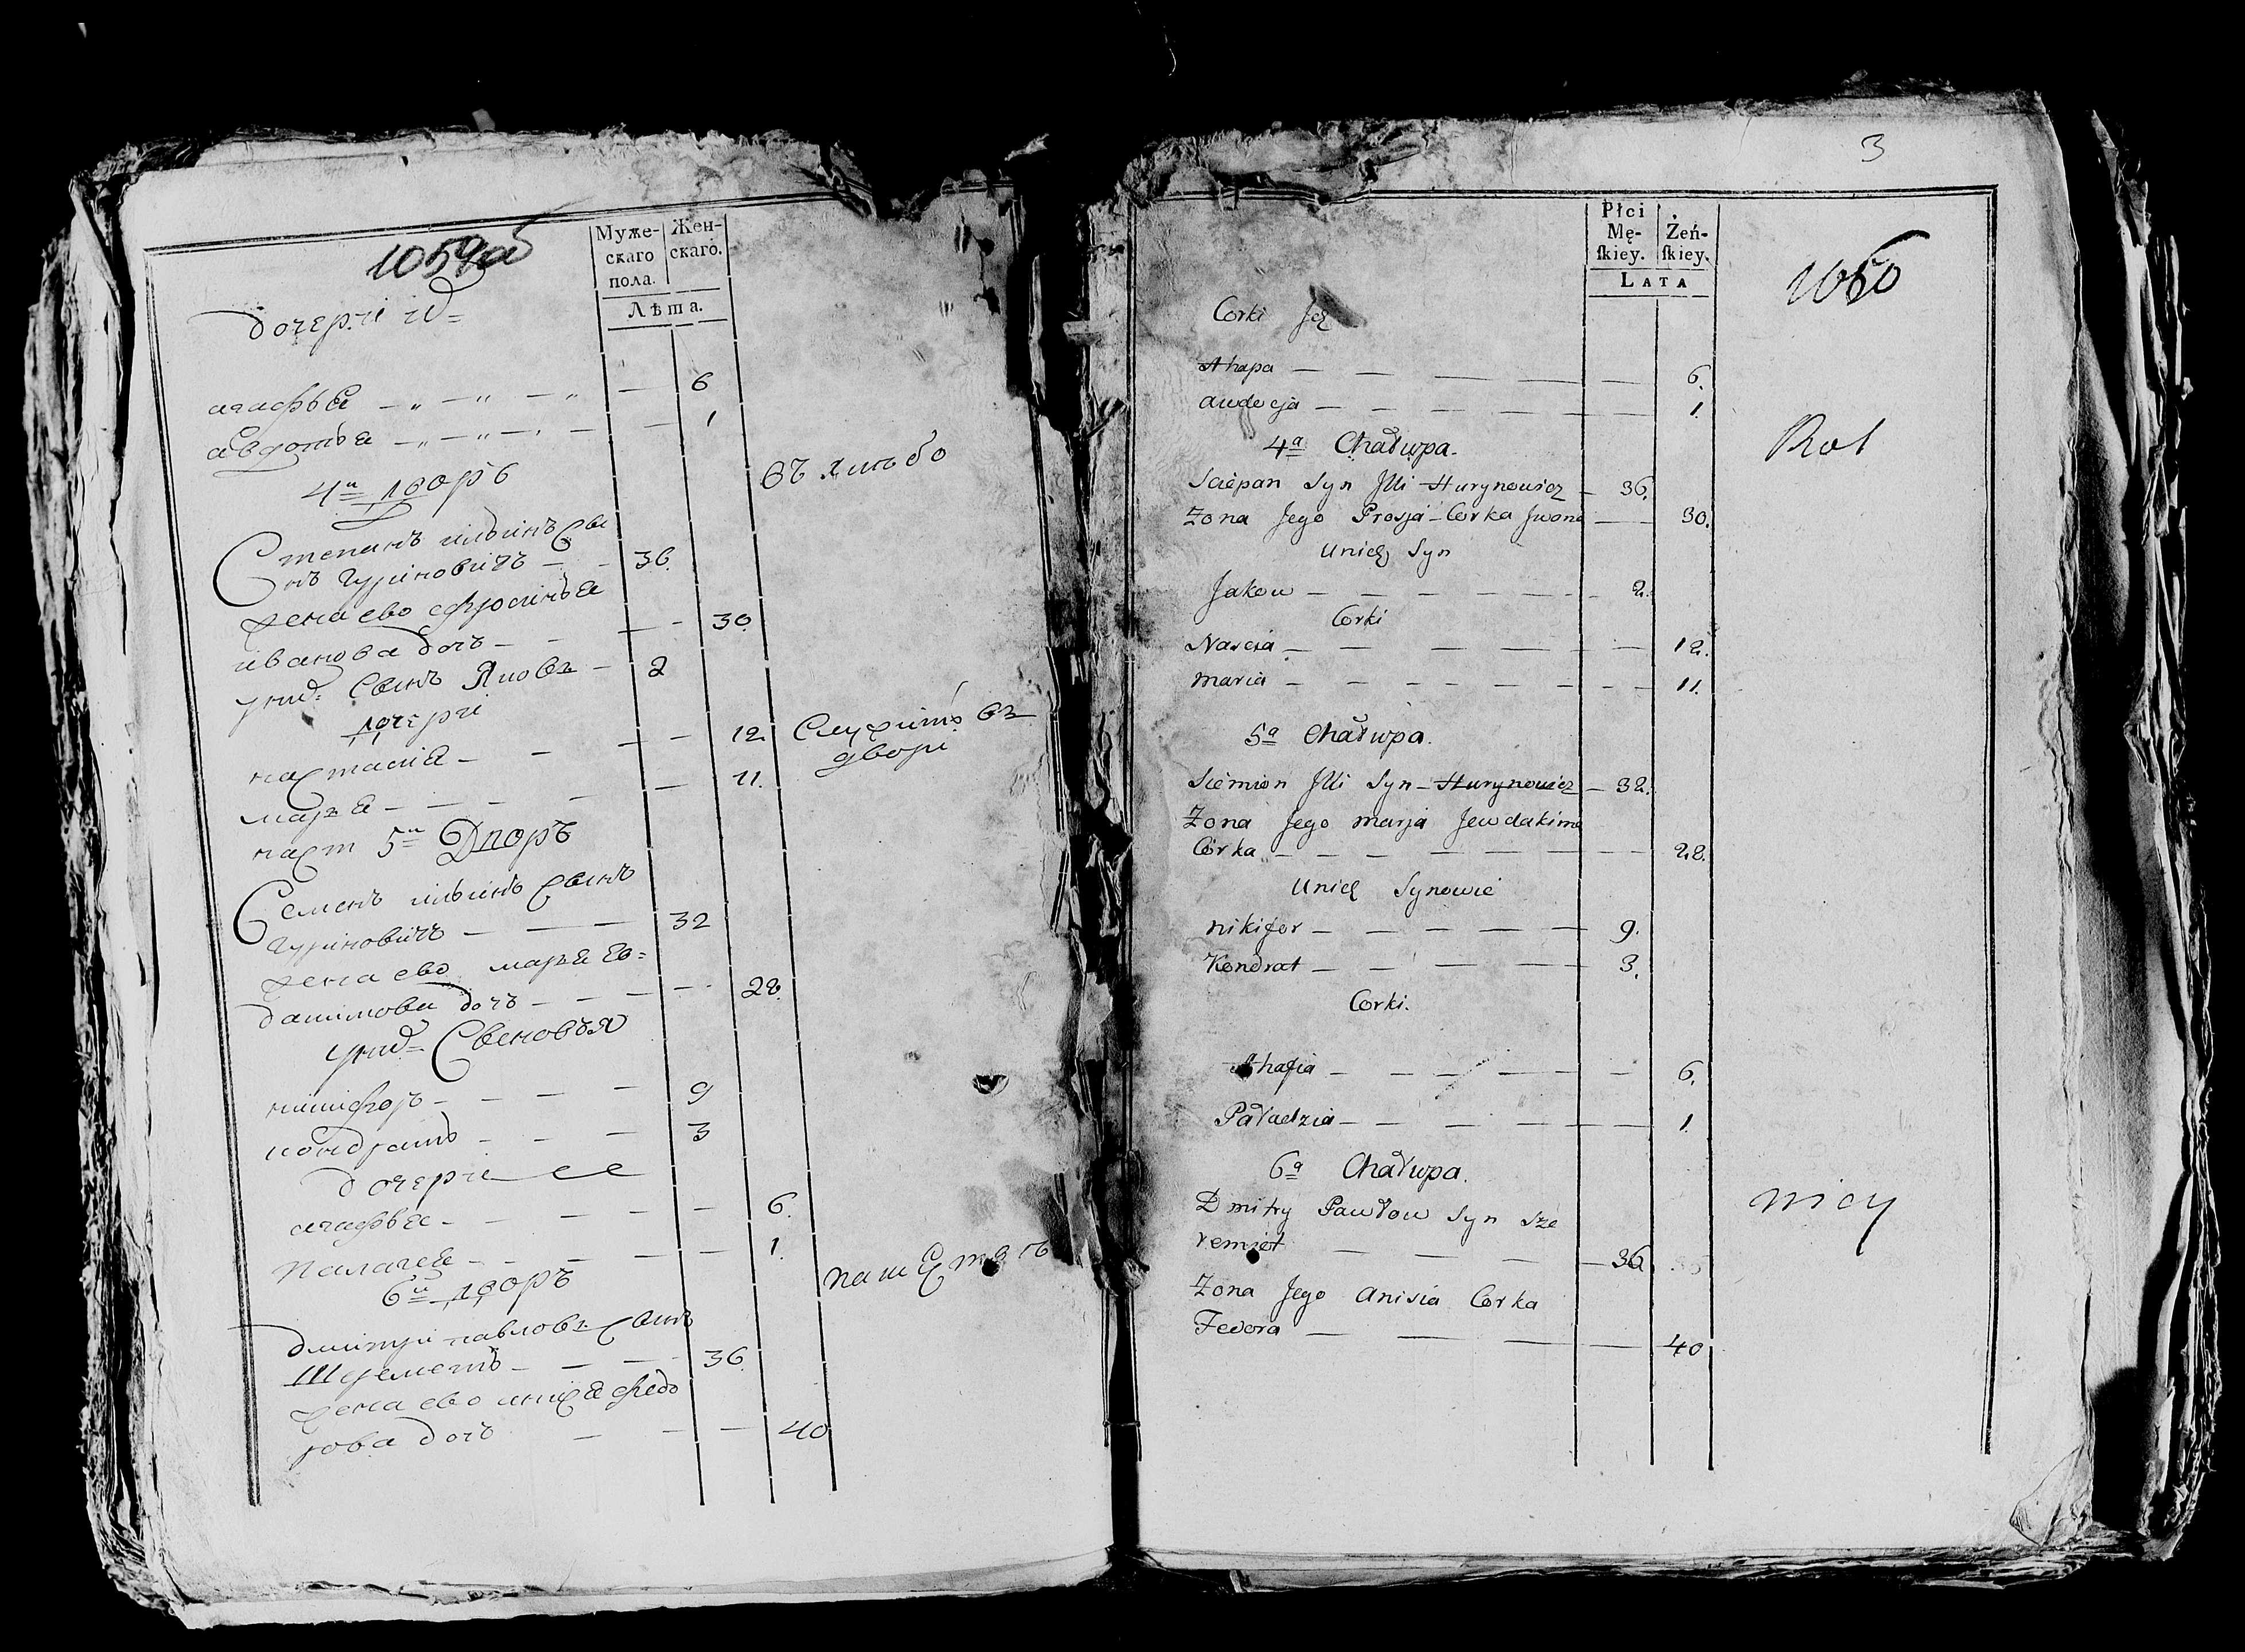 Муже-
скаго
пола.
Жен-
скаго.
Лѣта.
дочери
агафья 6
авдотья 1
4й дворъ
въ
Степанъ ильинъ сы
нъ гуриновичъ 36.
жена ево
иванова дочь 30.
сынъ Яковъ 2
дочери
настасия 12. Служитъ въ
дворѣ
марья 11.
5й Дворъ
Семенъ ильинъ сынъ
гуриновичъ 32
жена ево марья ев=
дакимова дочь 28.
Сыновья
никифоръ 9
кондратъ 3
дочери ее
агафья 6.
палагея 1.
6й дворъ
дмитри павловъ сынъ
Шереметъ 36.
жена ево федо
рова дочь 40
3
Płci
Mę-
ſkiey.
Żeń-
ſkiey.
LATA
1060
Corki Jch
Ahapa 6.
Audocja 1.
4a Chałupa.
Rol
Sciepan Syn Jlli Hurynowicz 36.
Zona Jego Prosja Corka Jwona 30.
Unich Syn
Jakow 2.
Corki
Nascia 12.
Maria 11.
5a Chałupa.
Siemion Jlli Syn Hurynowicz 32.
Zona Jego Marja Jewdakima
Corka 28.
Unich Synowie
Nikifor 9.
Kondrat 3.
Corki.
Ahafia 6.
Paładzia 1.
6a Chałupa.
Dmitry Pawłow Syn Sze nicy
remiet 36.
Zona Jego Anisia Corka
Fedora 40